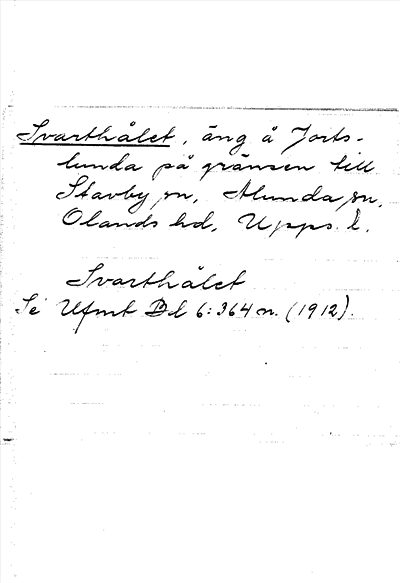 Svarthålet, äng å Jorts-
lunda på gränsen till
Stavby sn, Alunda sn,
Olands hd, Upps. l.
Svarthålet
Se Ufmt Bd 6:364 n. (1912).